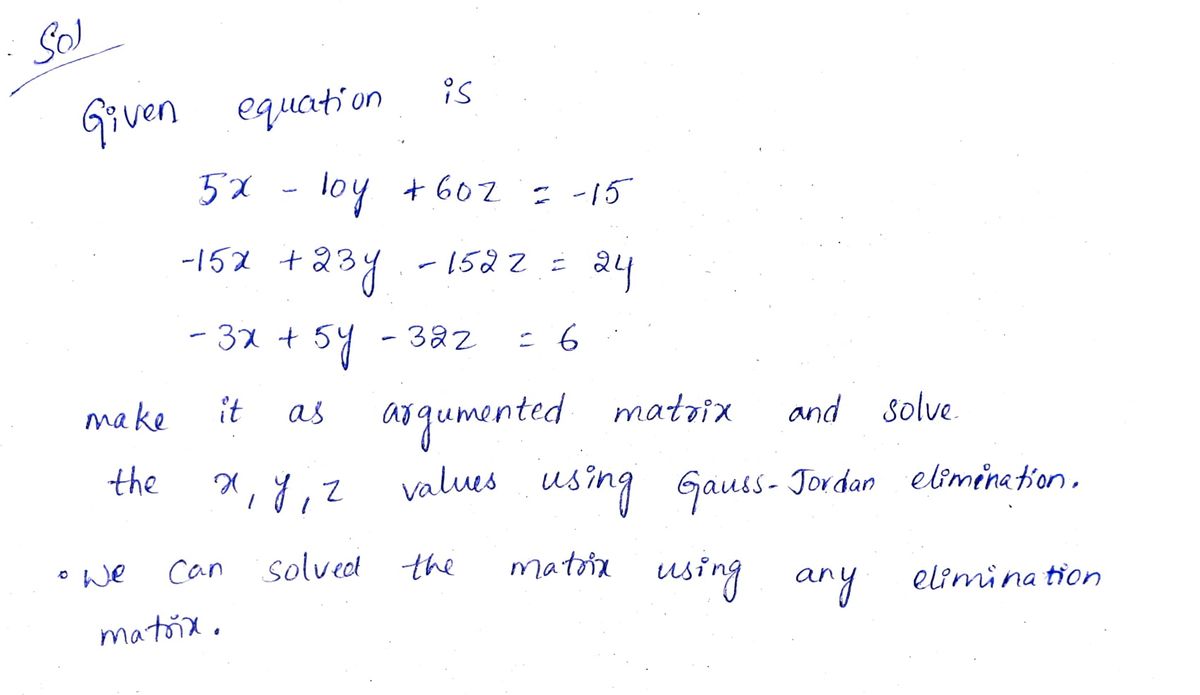 Sol
Given equation is
5x - 10y + 60z = -15
-15x + 23y - 152z = 24
-3x + 5y - 32z = 6
make it as argumented matrix and solve.
the x, y, z values using Gauss-Jordan elimination.
• We can solved the matrix using any elimination
matrix.